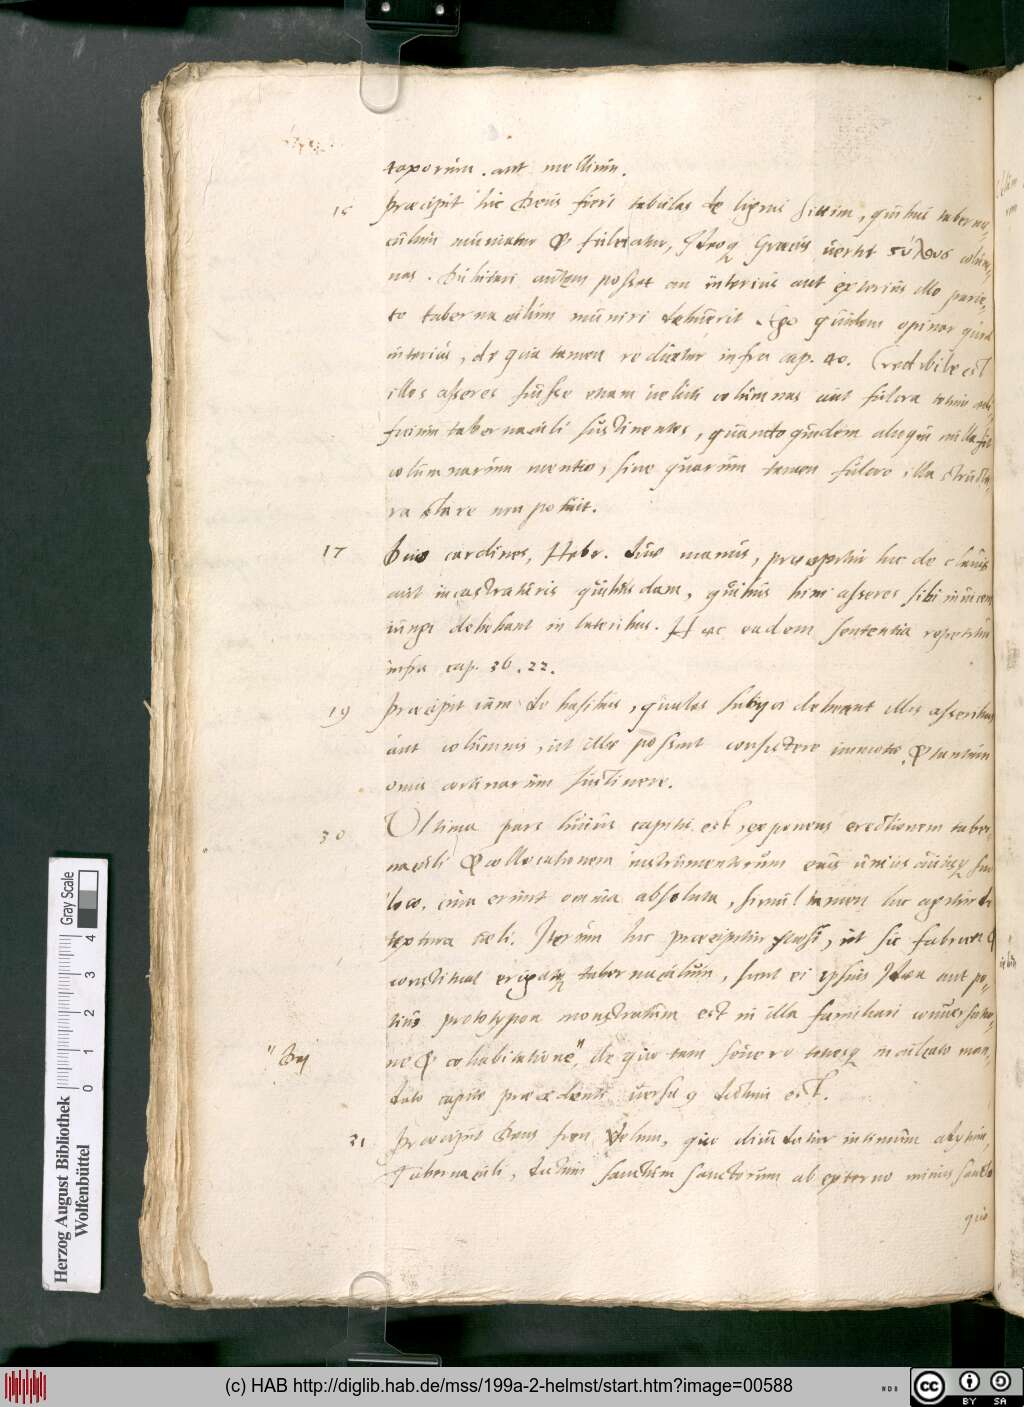 taxorum. aut mellinum.
15 Præcipit hic Deus fieri tabulas de lignis Sittim, quibus taberna-
culum muniatur & fulciatur, Ideoq Græcus uertit στύλους colum-
nas. Dubitari autem posset an interius aut exterius illo parie-
te tabernaculum muniri debuerit. Ego quidem opinor quod
interius, de qua tamen re dicetur infra cap. 40. Credibile est
illos asseres fuisse etiam ueluti columnas aut fulcra totius ædi-
ficium tabernaculi sustinentes, quando quidem alioqui nulla fit
columnarum mentio, sine quarum tamen fulcro illa structu-
ra stare non potuit.
17 Duo cardines, Hebr. duæ manus, præcipitur hic de clauis
aut incastraturis quibusdam, quibus bini asseres sibi inuicem
iungi debebant in lateribus. Hæc eadem sententia repetitur
infra cap. 36. 22.
19 Præcipit iam de basibus, quales subijci debeant illis asseribus
aut columnis, ut illæ possint consistere immotæ, & tantum
onus cortinarum sustinere.
30 Ultima pars huius capitis est, exponens erectionem taber-
naculi & collocationem instrumentorum eius unius cuiusq suo
loco, cum erunt omnia absoluta, simul tamen hic agitur de
textura ueli. Iterum hic præcipitur Mosi, ut sic fabricet &
constitutat erigatq tabernaculum, sicut ei ipsius Idea aut po-
tius prototypon monstratum est in illa familiari conuersatio-
" Dei ne & cohabitatione", de quo tam seuero totiesq inculcato man-
dato capite præcedenti uersu 9 dictum est.
31 Præcipit Deus fieri Velum, quo diuidatur intimum adytum
Tabernaculi, dictum sanctum sanctorum ab externo minus sancto
quo
Herzog August Bibliothek
Wolfenbüttel
0 1 2 3 4
Gray Scale
(c) HAB http://diglib.hab.de/mss/199a-2-helmst/start.htm?image=00588
NDB
CC BY SA